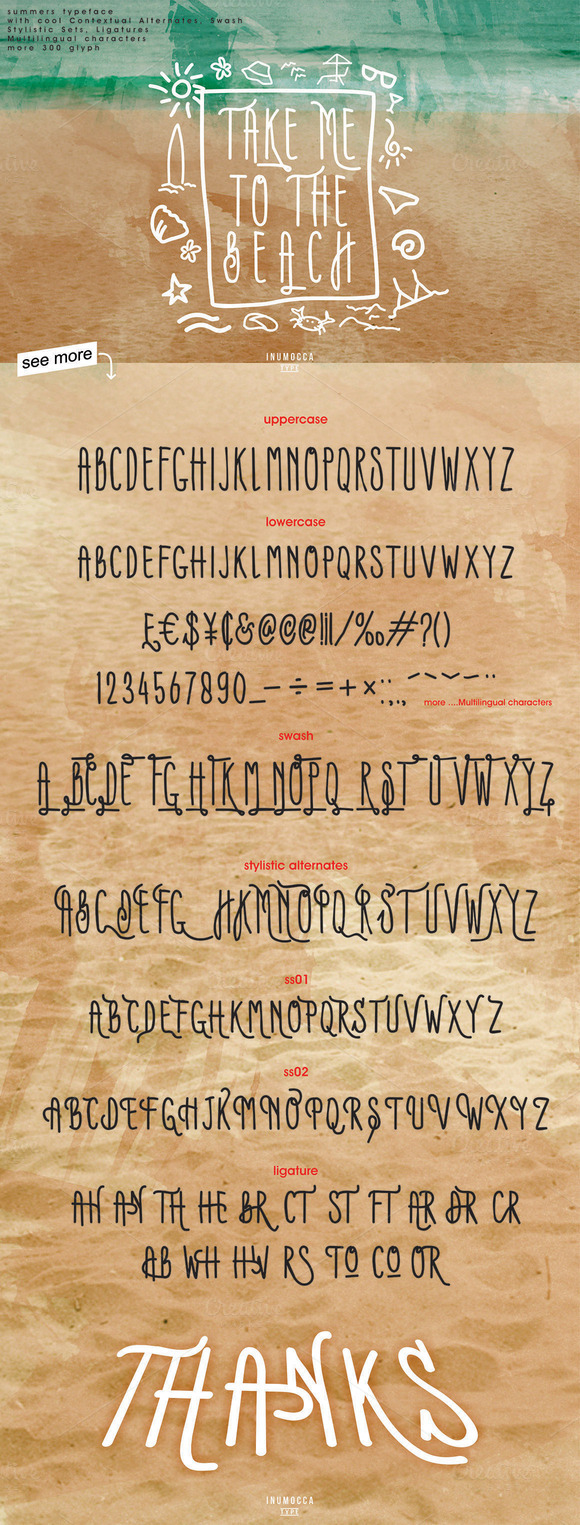 summers typeface
with cool Contextual Alternates, Swash
Stylistic Sets, Ligatures
Multilingual characters
more 300 glyph
TAKE ME
TO THE
BEACH
see more
INUMOCCA
TYPE
uppercase
ABCDEFGHIJKLMNOPQRSTUVWXYZ
lowercase
ABCDEFGHIJKLMNOPQRSTUVWXYZ
£€$¥₵&@@@@!¡|/‰#?()
1234567890_–÷=+×:;.,
more ....Multilingual characters
swash
A BCDE FG HIKM NOPQ RST UVWXYZ
stylistic alternates
ABCDEFG HKMNOPQRSTUVWXYZ
ss01
ABCDEFGHKMNOPQRSTUVWXYZ
ss02
ABCDEFGHJKMNOPQRSTUVWXYZ
ligature
AH AN TH HE BR CT ST FT AR DR CR
AB WH HW RS TO CO OR
THANKS
INUMOCCA
TYPE